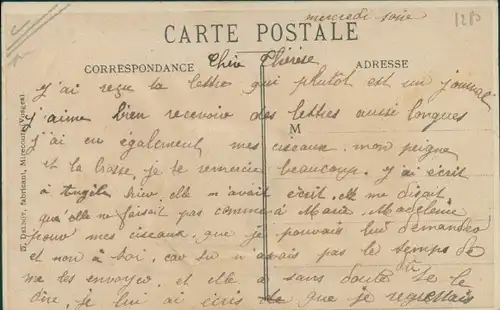 mercredi soir
1280
CARTE POSTALE
CORRESPONDANCE
ADRESSE
Chère Thérèse
j'ai reçu ta lettre qui plutôt est un journal
j'aime bien recevoir des lettres aussi longues
M
j'ai eu également mes ciseaux, mon peigne
et la brosse, je te remercie beaucoup. j'ai écrit
à Angèle hier, elle m'avait écrit, elle me disait
qu'elle ne faisait pas comme à Marie Madeleine
pour mes ciseaux, que je pouvais lui demander
et non à toi, car tu n'avais pas le temps de
me les envoyer, et elle a sans doute dû te le
dire, je lui ai écris que je regrettais
D. Delboy, fabricant, Mirecourt (Vosges)